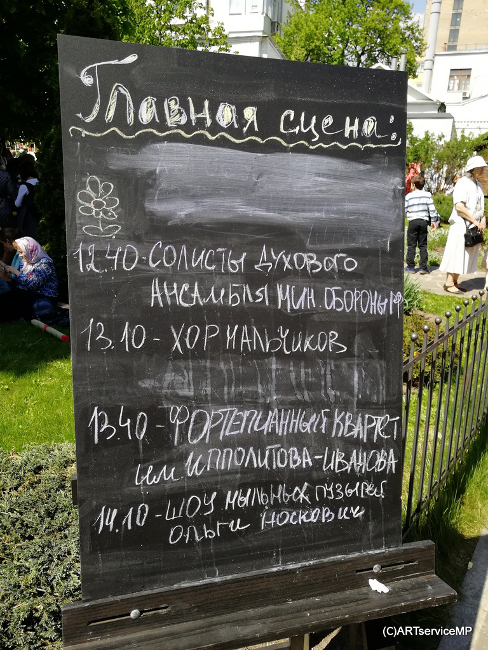 Главная сцена:
12.40-СОЛИСТЫ ДУХОВОГО
АНСАМБЛЯ МИН. ОБОРОНЫ РФ
13.10-ХОР МАЛЬЧИКОВ
13.40-ФОРТЕПИАННЫЙ КВАРТЕТ
им ИППОЛИТОВА-ИВАНОВА
14.10-ШОУ МЫЛЬНЫХ ПУЗЫРЕЙ
ОЛЬГИ НОСКОВИЧ
(C)ARTserviceMP